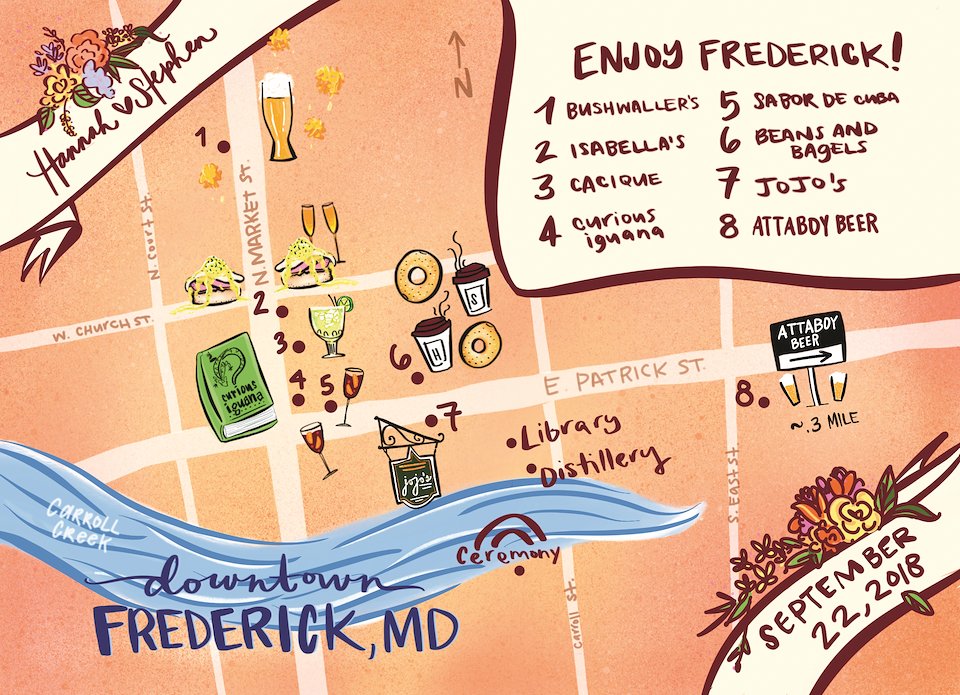 Hannah ♥ Stephen
N
ENJOY FREDERICK!
1 BUSHWALLER'S
2 ISABELLA'S
3 CACIQUE
4 curious
iguana
5 SABOR DE CUBA
6 BEANS AND
BAGELS
7 JOJO'S
8 ATTABOY BEER
1
N. Court St.
N. MARKET St.
W. CHURCH ST.
2
3
4
5
6
S
H
curious
iguana
E. PATRICK ST.
7
jojo's
Library
Distillery
ATTABOY
BEER
8
~.3 MILE
S. East St.
Carroll
Creek
Ceremony
Carroll St.
downtown
FREDERICK, MD
SEPTEMBER
22, 2018